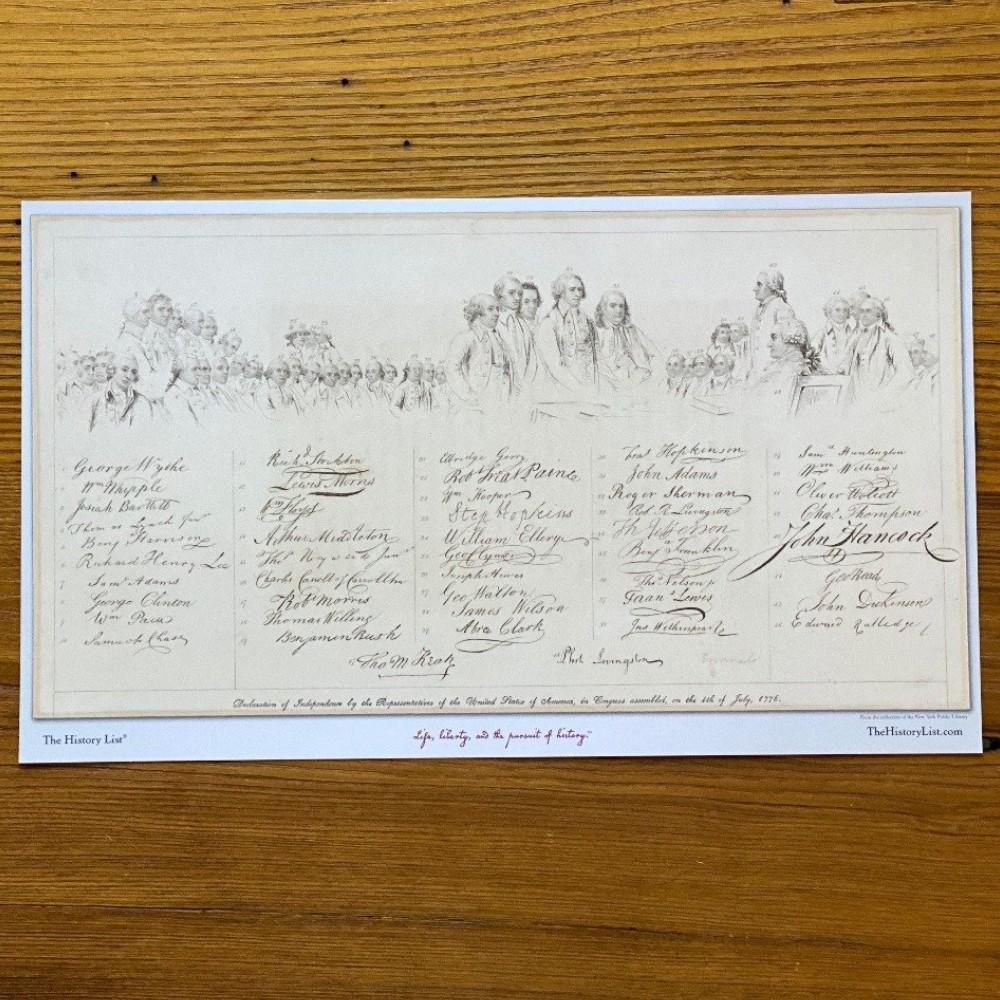 George Wythe
Wm Whipple
Josiah Bartlett
Thomas Lynch Junr
Benj Harrison
Richard Henry Lee
Sam Adams
George Clinton
Wm Paca
Samuel Chase
Richd Stockton
Lewis Morris
Wm Floyd
Arthur Middleton
Thos Heyward Junr
Charles Carroll of Carrollton
Robt Morris
Thomas Willing
Benjamin Rush
Elbridge Gerry
Robt Treat Paine
Wm Hooper
Step Hopkins
William Ellery
Geo Clymer
Joseph Hewes
Geo Walton
James Wilson
Abra Clark
Fras Hopkinson
John Adams
Roger Sherman
Rob R Livingston
Th Jefferson
Benj Franklin
Thos Nelson jr
Frans Lewis
Jno Witherspoon
Saml Huntington
Wm Williams
Oliver Wolcott
Chas. Thompson
John Hancock
Geo Read
John Dickinson
Edward Rutledge
Tho M Kean
Phil Livingston
Declaration of Independence by the Representatives of the United States of America, in Congress assembled, on the 4th of July, 1776.
From the collection of the New York Public Library
The History List®
"Life, liberty, and the pursuit of history."™
TheHistoryList.com